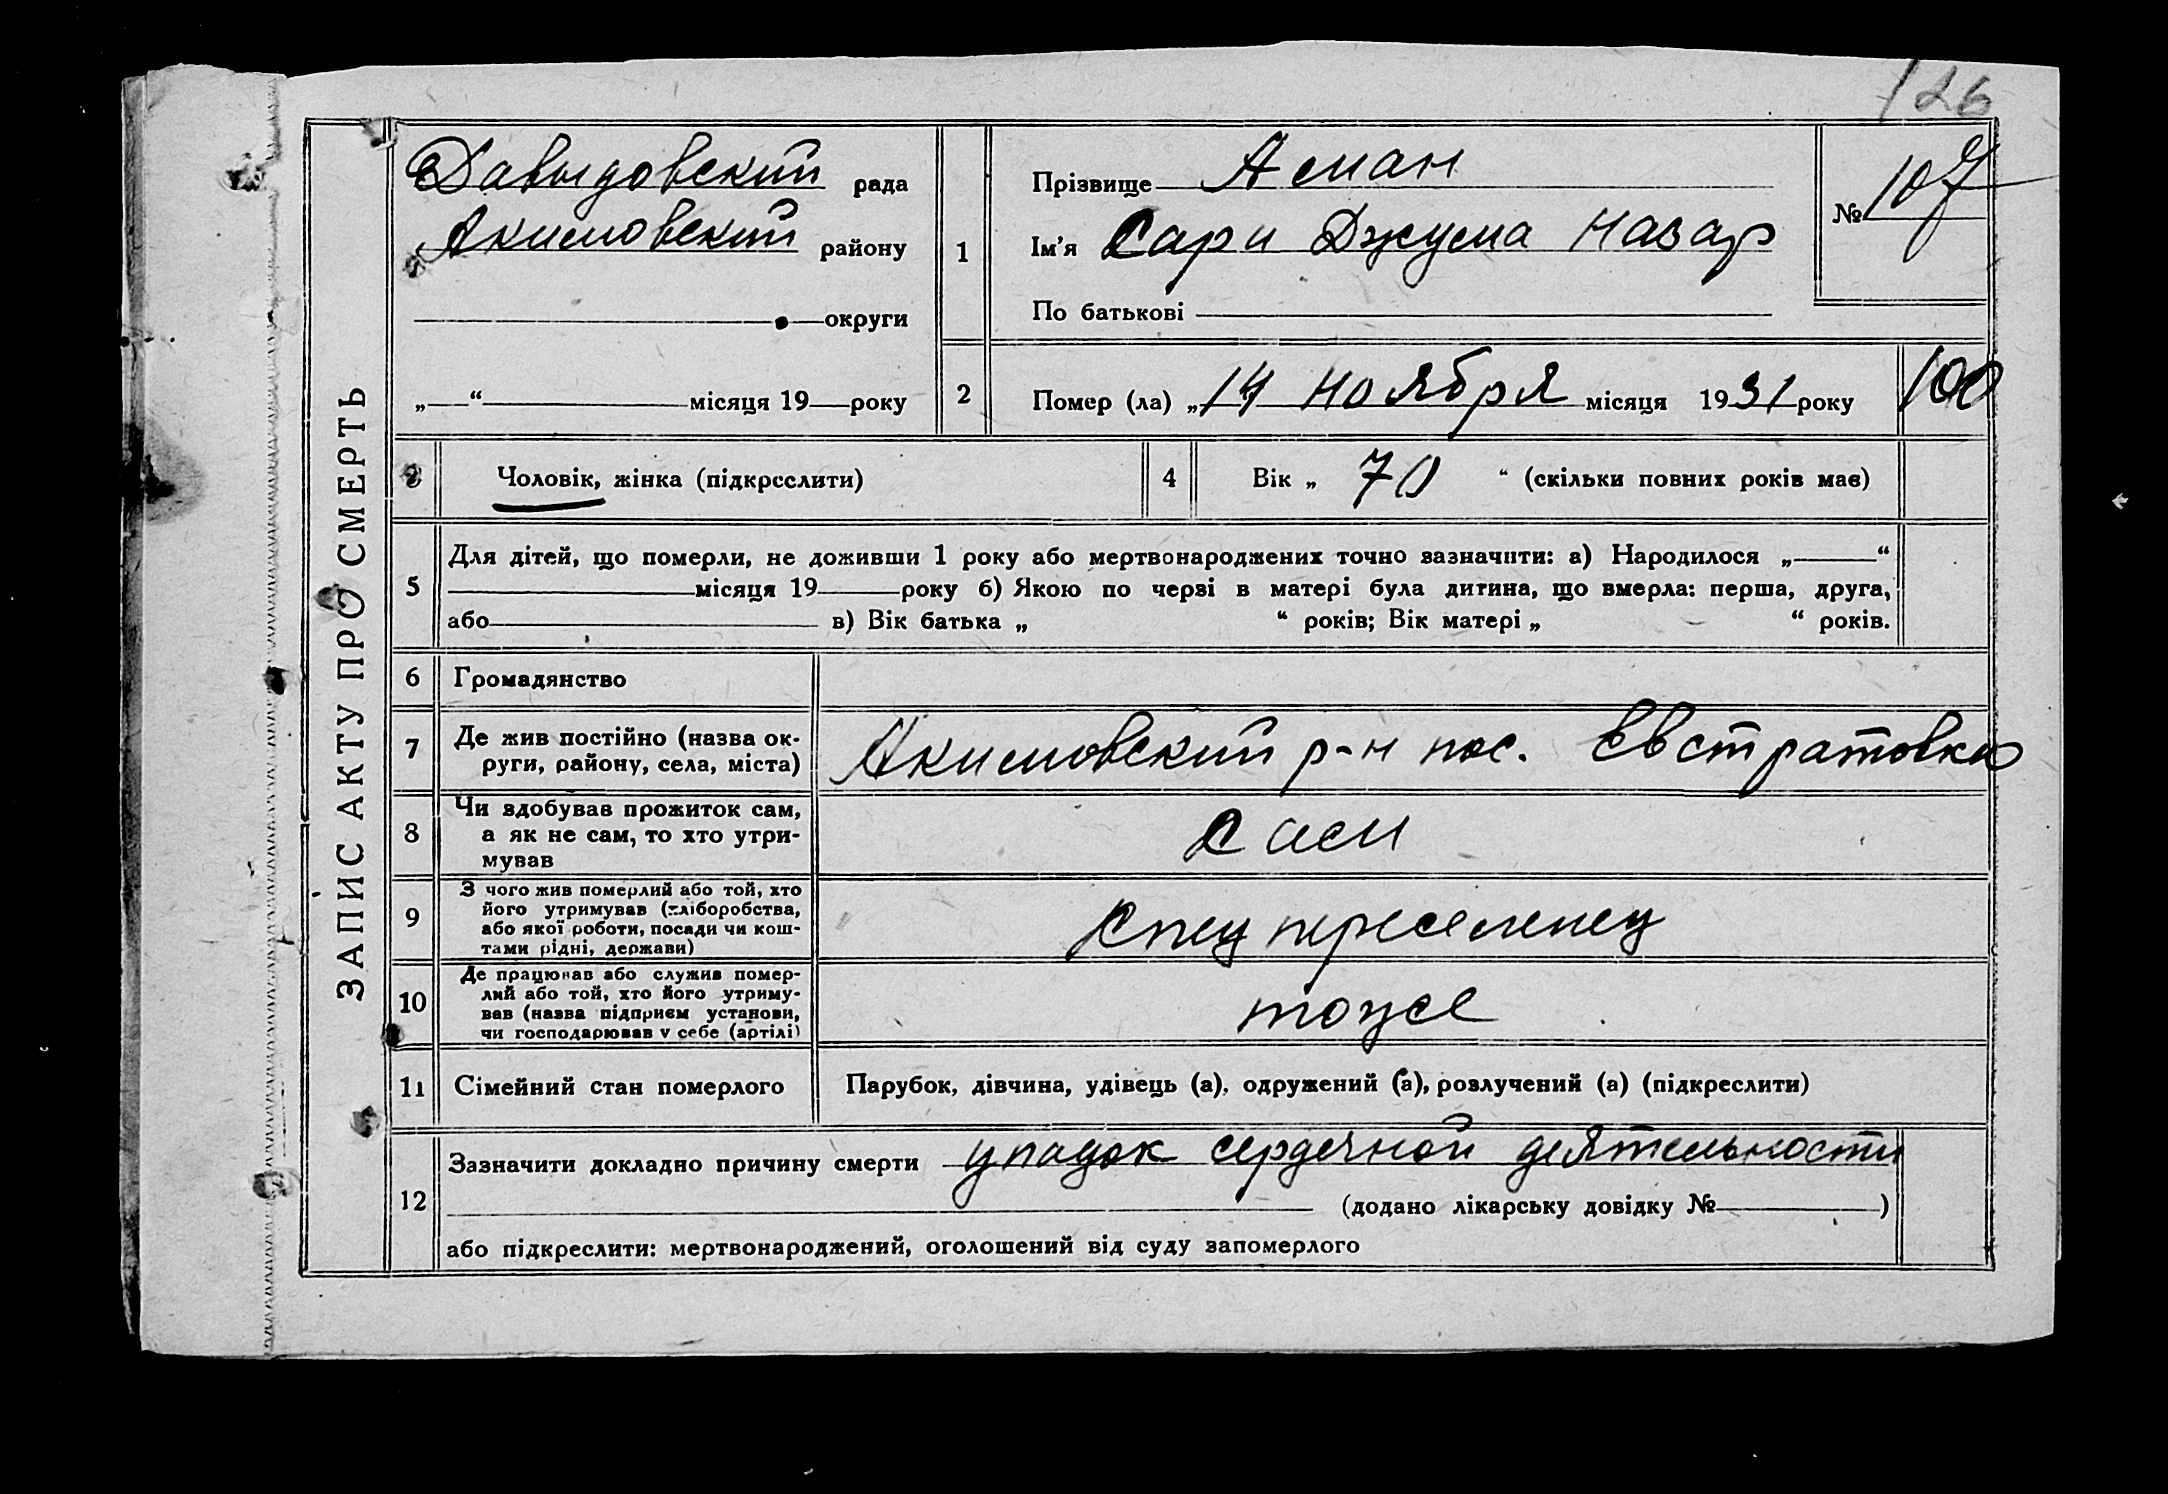 126
ЗАПИС АКТУ ПРО СМЕРТЬ
Давыдовский рада
Акимовский району
округи
„ “ місяця 19 року
1
Прізвище Асман
Ім'я Сари Джума Назар
По батькові
№ 107
2 Помер (ла) „14 ноября місяця 1931 року 100
3 Чоловік, жінка (підкреслити)
4 Вік „ 70 “ (скільки повних років має)
5 Для дітей, що померли, не доживши 1 року або мертвонароджених точно зазначити: а) Народилося „ “
місяця 19 року б) Якою по черзі в матері була дитина, що вмерла: перша, друга,
або в) Вік батька „ “ років; Вік матері „ “ років.
6 Громадянство
7 Де жив постійно (назва ок-
руги, району, села, міста)
Акимовский р-н пос. Евстратовка
8 Чи здобував прожиток сам,
а як не сам, то хто утри-
мував
сам
9 З чого жив померлий або той, хто
його утримував (хліборобства,
або якої роботи, посади чи кош-
тами рідні, держави)
Спец переселенец
10 Де працював або служив помер-
лий або той, хто його утриму-
вав (назва підприєм установи,
чи господарював у себе (артілі)
тоже
11 Сімейний стан померлого
Парубок, дівчина, удівець (а), одружений (а), розлучений (а) (підкреслити)
12 Зазначити докладно причину смерти упадок сердечной деятельности
(додано лікарську довідку № )
або підкреслити: мертвонароджений, оголошений від суду запомерлого